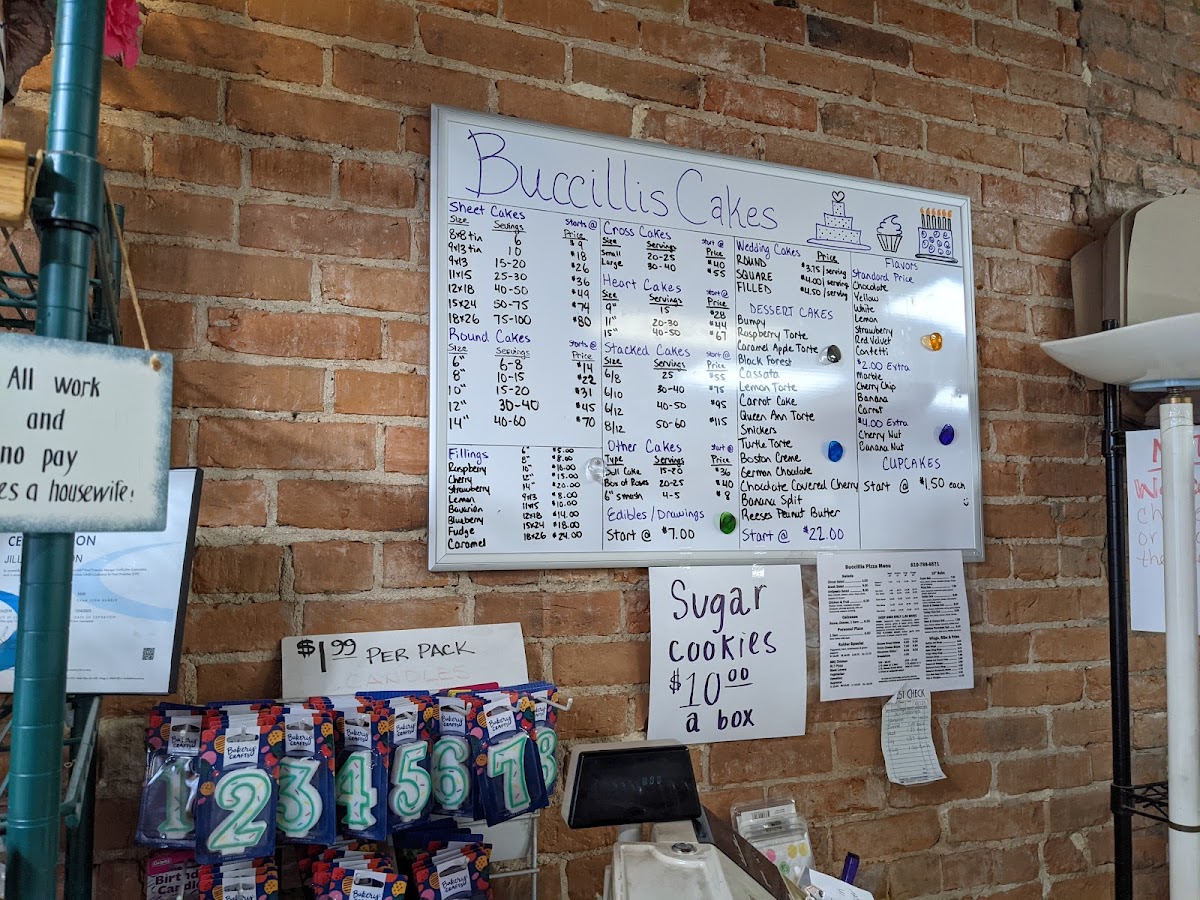 Buccillis Cakes
Sheet Cakes
Size Servings Starts @ Price
8x8 tin 6 $9
9x13 tin 10 $18
9x13 15-20 $26
11x15 25-30 $36
12x18 40-50 $49
15x24 50-75 $74
18x26 75-100 $80
Round Cakes
Size Servings Starts @ Price
6" 6-8 $14
8" 10-15 $22
10" 15-20 $31
12" 30-40 $45
14" 40-60 $70
Fillings
Raspberry
Cherry
Strawberry
Lemon
Bavarian
Blueberry
Fudge
Caramel
6" $5.00
8" $8.00
10" $10.00
12" $15.00
14" $20.00
9x13 $8.00
11x15 $10.00
12x18 $14.00
15x24 $18.00
18x26 $24.00
Cross Cakes
Size Servings Start @ Price
Small 20-25 $40
Large 30-40 $55
Heart Cakes
Size Servings Start @ Price
9" 15 $28
11" 20-30 $44
15" 40-50 $67
Stacked Cakes
Size Servings Start @ Price
6/8 25 $55
6/10 30-40 $75
6/12 40-50 $95
8/12 50-60 $115
Other Cakes
Type Servings Start @ Price
Doll Cake 15-20 $36
Box of Roses 20-25 $40
6" smash 4-5 $8
Edibles/Drawings
Start @ $7.00
Wedding Cakes Price
ROUND $3.75/serving
SQUARE $4.00/serving
FILLED $4.50/serving
DESSERT CAKES
Bumpy
Raspberry Torte
Caramel Apple Torte
Black Forest
Cassata
Lemon Torte
Carrot Cake
Queen Ann Torte
Snickers
Turtle Torte
Boston Creme
German Chocolate
Chocolate Covered Cherry
Banana Split
Reeses Peanut Butter
Start @ $22.00
Flavors
Standard Price
Chocolate
Yellow
White
Lemon
Strawberry
Red Velvet
Confetti
$2.00 Extra
Marble
Cherry Chip
Banana
Carrot
$4.00 Extra
Cherry Nut
Banana Nut
CUPCAKES
Start @ $1.50 each
All work
and
no pay
es a housewife!
$1.99 PER PACK
CANDLES
Sugar
cookies
$10.00
a box
Buccillis Pizza Menu
Bakery
Crafts
1
2
3
4
5
6
7
8